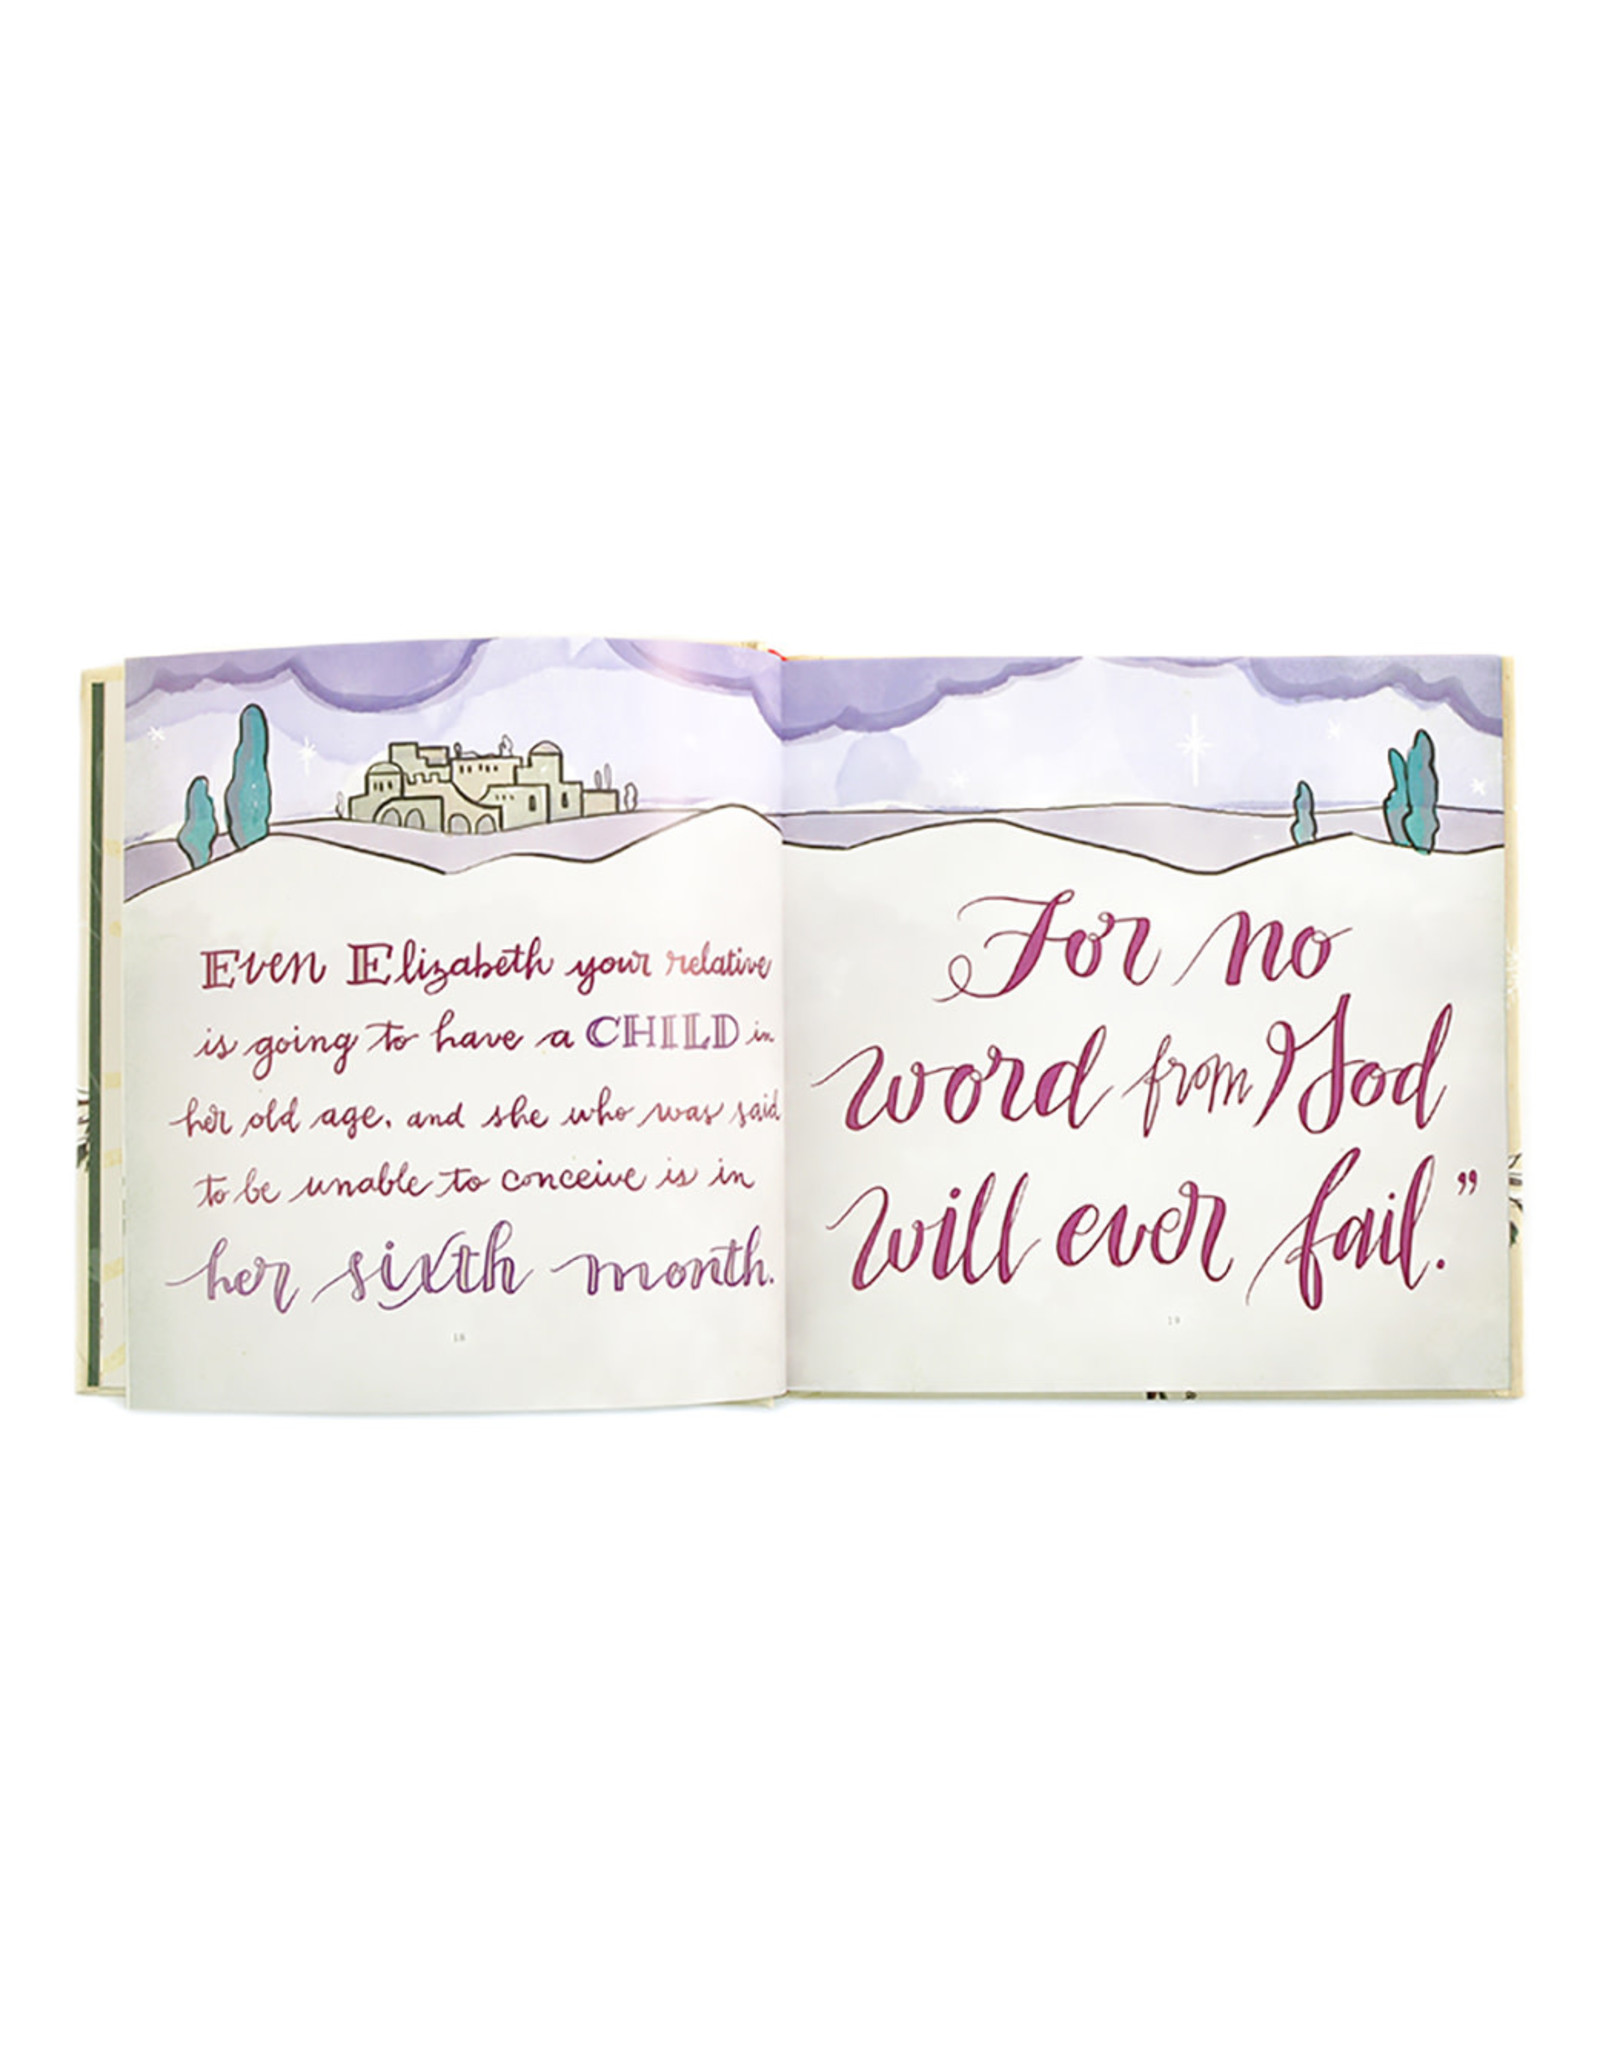 Even Elizabeth your relative
is going to have a CHILD in
her old age, and she who was said
to be unable to conceive is in
her sixth month.
18
For no
word from God
will ever fail.”
19